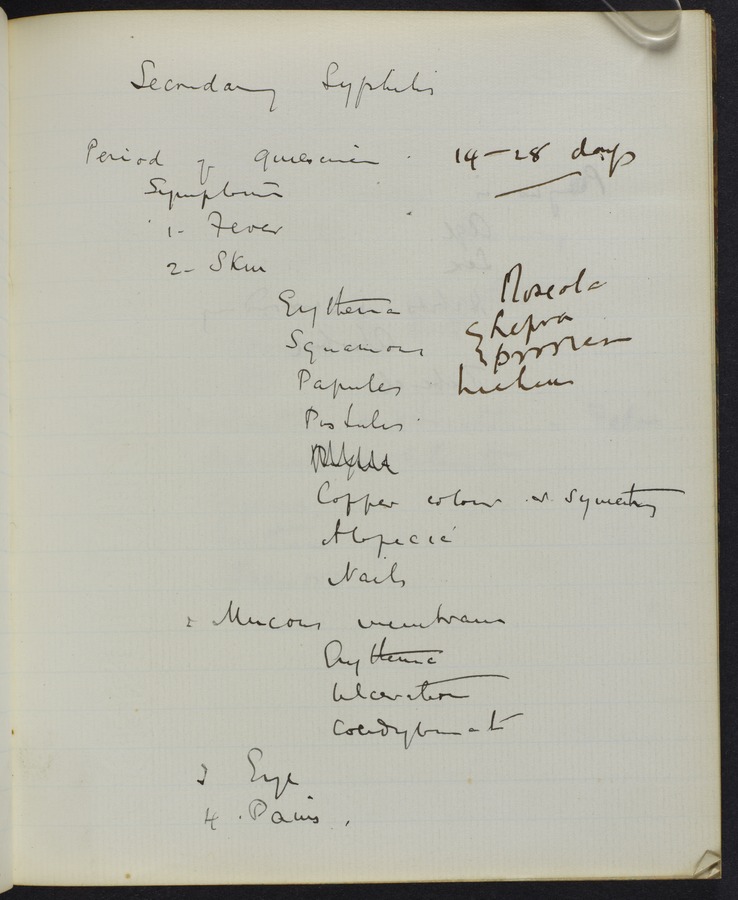 Secondary Syphilis
Period of quiescence . 14-28 days
Symptoms
1- Fever
2- Skin
Erythema Roseola
Squamous { Lepra
{ psoriasis
Papules Lichen
Pustules
Copper colour symetry
Alopecia
Nails
Mucous membrane
Erythema
Ulceration
Condylomat
3 Eye
4 . Pains .